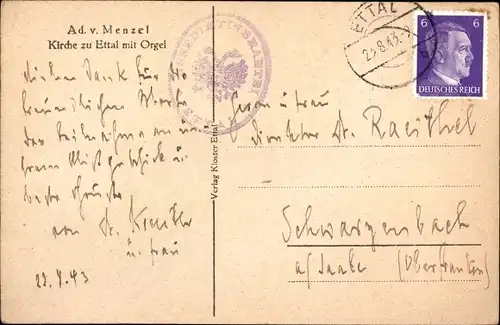 Ad. v. Menzel
Kirche zu Ettal mit Orgel
Lieben Dank für die
freundlichen Worte
der Teilnahme an un-
serem Mißgeschick u.
beste Grüße
von Dr.
u. Frau
23.8.43
Verlag Kloster Ettal
ETTAL
23.8.43
6 6
DEUTSCHES REICH
Herrn u Frau
Direktor Dr. Raithel
Schwarzenbach
a/Saale (Oberfranken)